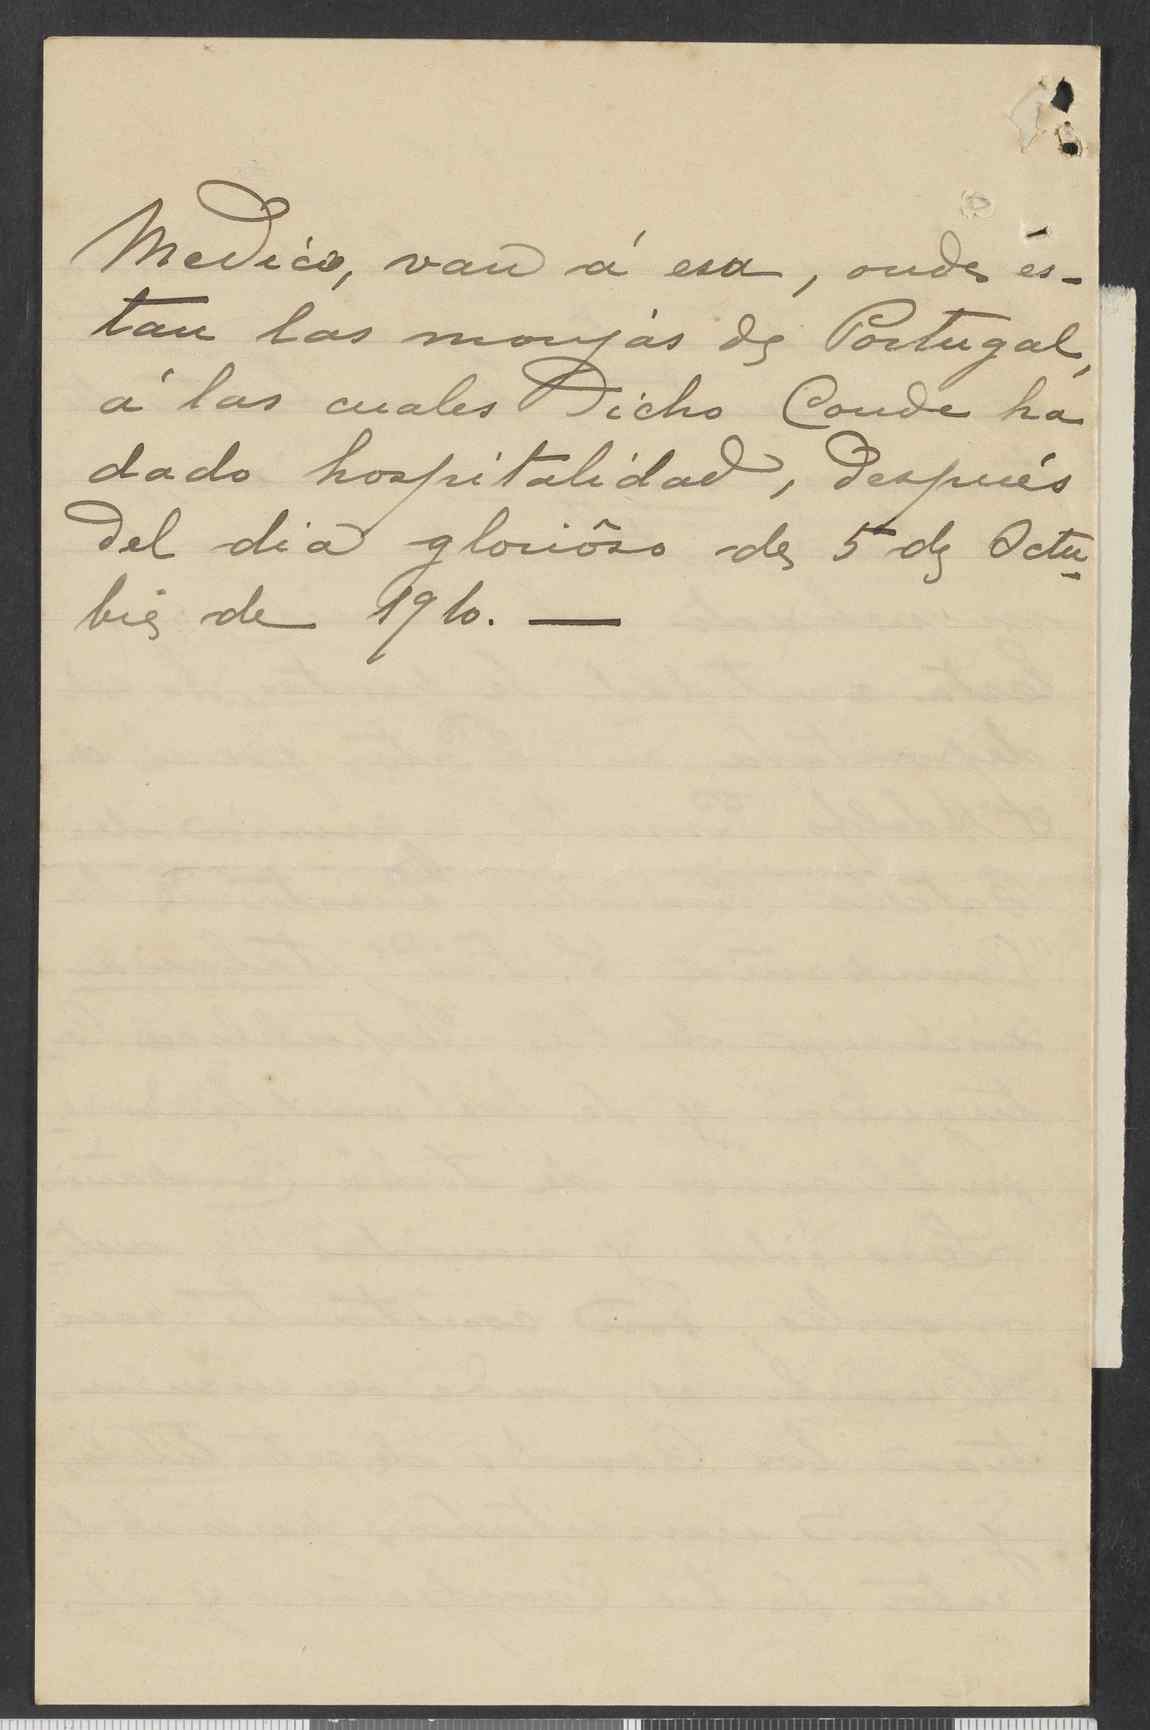 Medico, van á esa, onde és-
tan las monjás de Portugal,
á las cuales Dicho Conde ha
dado hospitalidad, Después
Del dia gloriôso de 5 de Octu-
bre de 1910. —